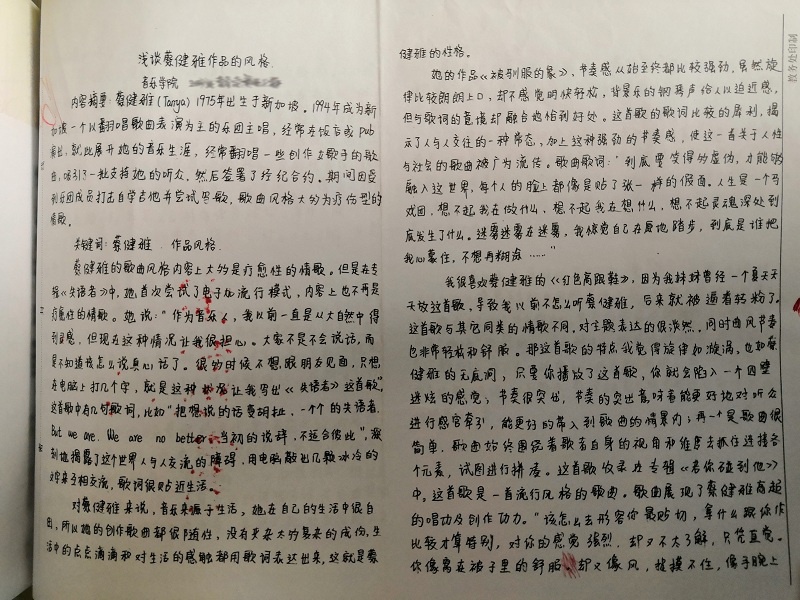 浅谈蔡健雅作品的风格
音乐学院
内容摘要:蔡健雅(Tanya)1975年出生于新加坡。1994年成为新
加坡一个以翻唱歌曲表演为主的乐团主唱,经常在饭店或pub
演出,就此展开她的音乐生涯,经常翻唱一些创作女歌手的歌
曲,吸引了一批支持她的听众,然后签署了经纪合约。期间因受
到乐团成员打击自学吉他并尝试写歌。歌曲风格大多为疗伤型的
情歌。
关键词:蔡健雅 作品风格
蔡健雅的歌曲风格内容上大多是疗愈性的情歌。但是在专
辑《失语者》中,她首次尝试了电子加流行模式,内容上也不再是
疗愈性的情歌。她说:“作为音乐人,我以前一直是从大自然中得
到灵感,但现在这种情况让我很担心。大家不是不会说话,而
是不知道该怎么说真心话了。很多时候不想跟朋友见面,只想
在电脑上打几个字,就是这种状况让我写出《失语者》这首歌”
这首歌中有几句歌词,比如“把想说的话要胡扯,一个个的失语者.
But we are. We are no better.当初的说辞,不适合彼此”,深
刻地揭露了这个世界人与人交流的障碍,用电脑敲出几颗冰冷的
文字来互相交流,歌词很贴近生活。
对蔡健雅来说,音乐来源于生活,她在自己的生活中很自
由,所以她的创作歌曲都很随性,没有更杂太多复杂的成份,生
活中的点点滴滴和对生活的感触都用歌词表达出来,这就是蔡
健雅的性格。
她的作品《被驯服的象》,节奏感从始至终都比较强劲。虽然旋
律比较朗朗上口,却不感觉明快轻松,背景乐的钢琴声给人以迫近感,
但与歌词的意境却融合地恰到好处。这首歌的歌词比较的犀利,揭
示了人与人交往的一种常态,加上这种强劲的节奏感,使这一首关于人性
与社会的歌曲被广为流传。歌曲歌词:“到底要笑得多虚伪,才能够
融入这世界,每个人的脸上都像是贴了张一样的假面。人生是一个马
戏团,想不起我在做什么,想不起我在想什么,想不起灵魂深处到
底发生了什么。迷雾迷雾在迷雾,我惊觉自己在原地踏步,到底是谁把
我心蒙住,不想再糊涂……”
我很喜欢蔡健雅的《红色高跟鞋》,因为我妹妹曾经一个夏天天
天放这首歌,导致我以前不怎么听蔡健雅,后来就被逼着转粉了。
这首歌与其它同类的情歌不同,对主题表达的很淡然,同时曲风节奏
也非常轻松和舒服。那这首歌的特点我觉得旋律如漩涡,也如蔡
健雅的无底洞,只要你播放了这首歌,你就会陷入一个四壁
迷炫的感觉;节奏很突出,节奏的突出有时看能更好地对听众
进行感官牵引,能更好的带入到歌曲的情景内;再一个是歌曲很
简单,歌曲始终围绕着歌者自身的视角和维度去抓住连接各
个元素,试图进行拼凑。这首歌收录进专辑《若你碰到他》
中。这首歌是一首流行风格的歌曲。歌曲展现了蔡健雅高超
的唱功及创作功力。“该怎么去形容你最贴切,拿什么跟你作
比较才算特别,对你的感觉强烈,却又不太了解,只凭直觉。
你像窝在被子里的舒服,却又像风,捉摸不住,像手腕上
教务处印制